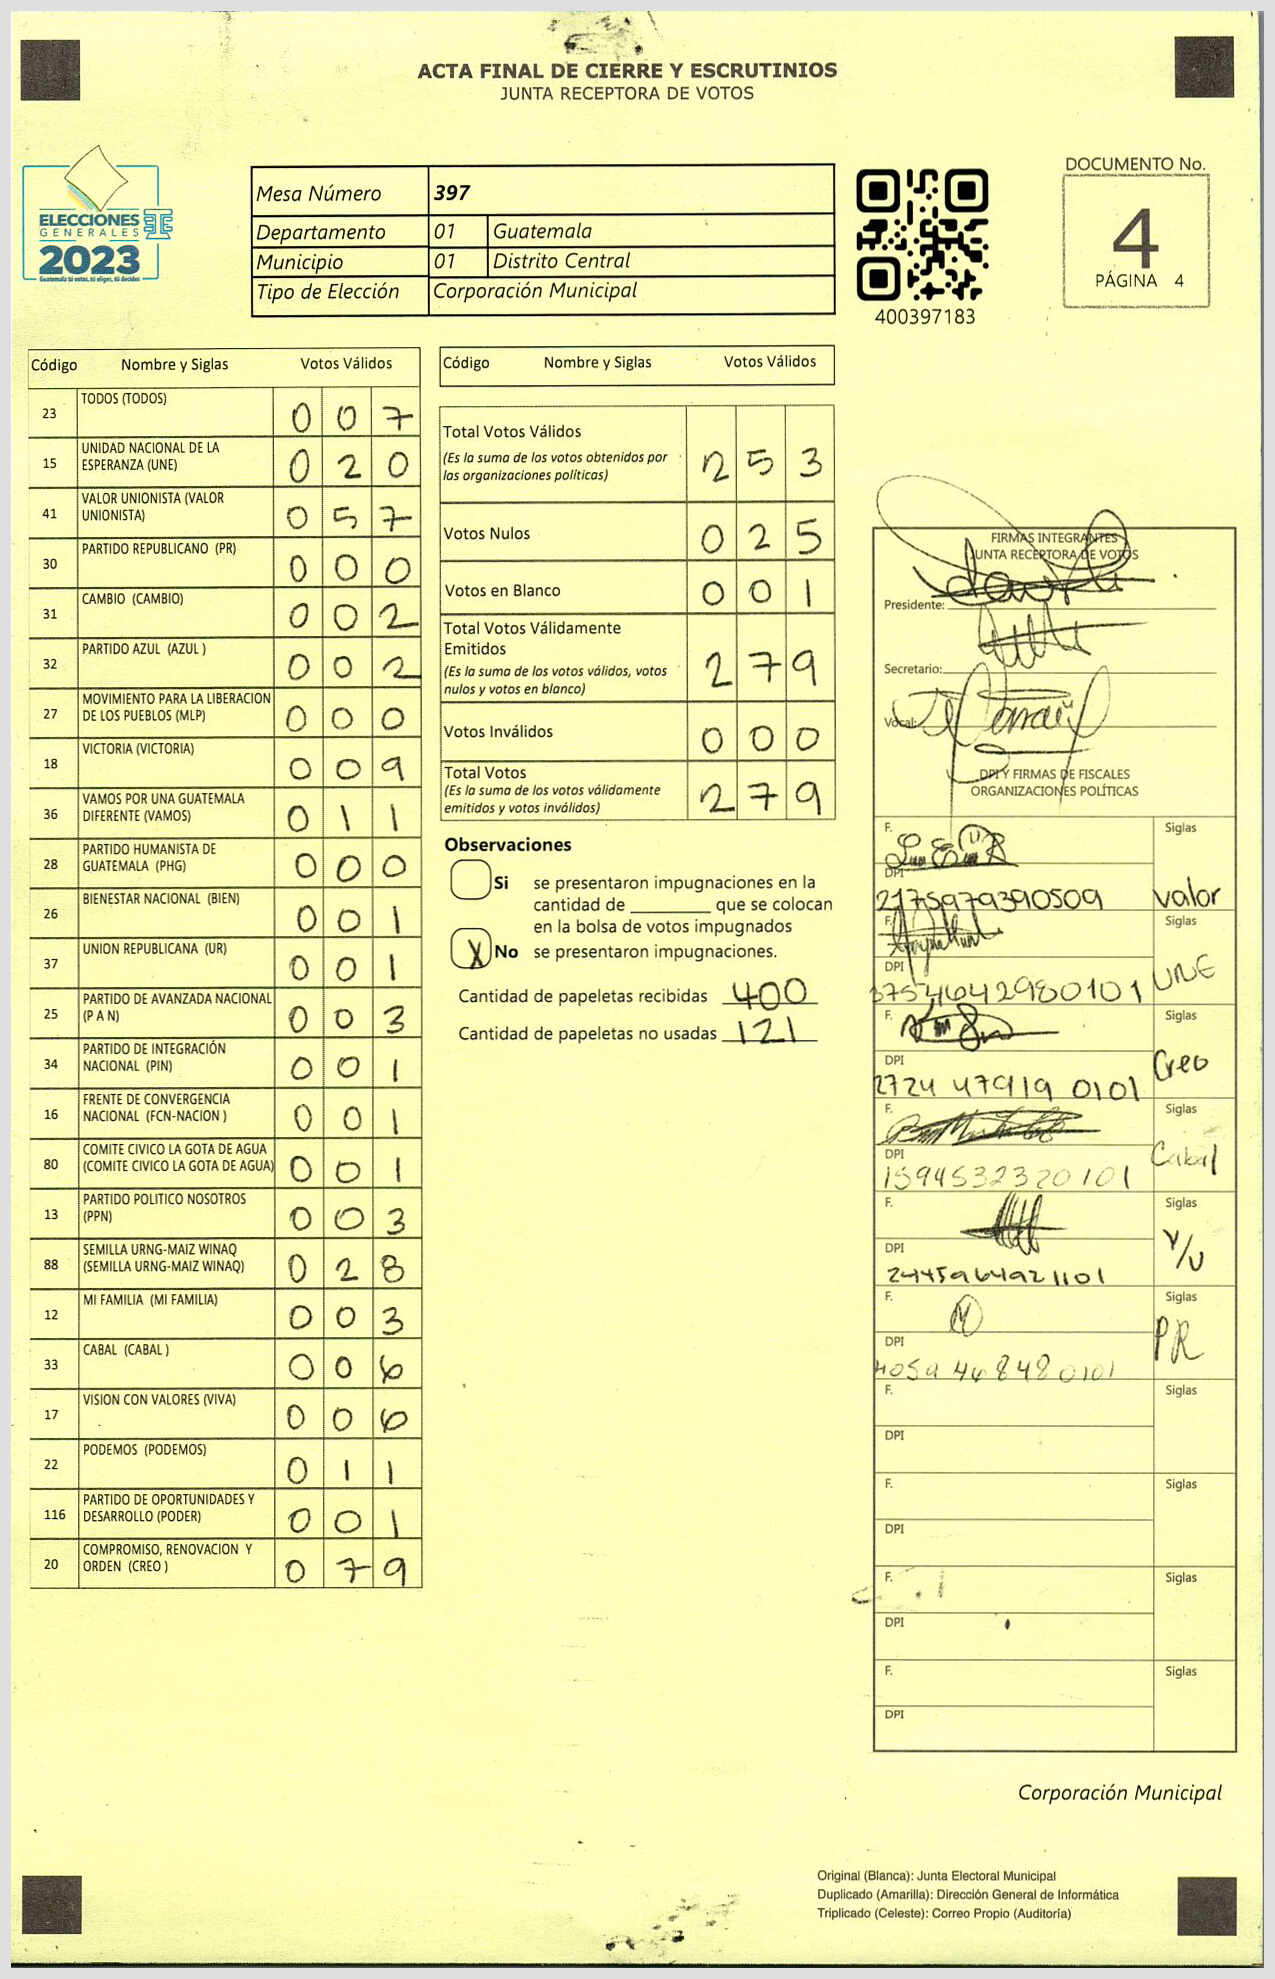 ACTA FINAL DE CIERRE Y ESCRUTINIOS
JUNTA RECEPTORA DE VOTOS
ELECCIONES
GENERALES
2023
Guatemala tú votas, tú eliges, tú decides
Mesa Número 397
Departamento 01 Guatemala
Municipio 01 Distrito Central
Tipo de Elección Corporación Municipal
400397183
DOCUMENTO No.
4
PÁGINA 4
Código Nombre y Siglas Votos Válidos
23 TODOS (TODOS) 0 0 7
15 UNIDAD NACIONAL DE LA ESPERANZA (UNE) 0 2 0
41 VALOR UNIONISTA (VALOR UNIONISTA) 0 5 7
30 PARTIDO REPUBLICANO (PR) 0 0 0
31 CAMBIO (CAMBIO) 0 0 2
32 PARTIDO AZUL (AZUL ) 0 0 2
27 MOVIMIENTO PARA LA LIBERACION DE LOS PUEBLOS (MLP) 0 0 0
18 VICTORIA (VICTORIA) 0 0 9
36 VAMOS POR UNA GUATEMALA DIFERENTE (VAMOS) 0 1 1
28 PARTIDO HUMANISTA DE GUATEMALA (PHG) 0 0 0
26 BIENESTAR NACIONAL (BIEN) 0 0 1
37 UNION REPUBLICANA (UR) 0 0 1
25 PARTIDO DE AVANZADA NACIONAL (P A N) 0 0 3
34 PARTIDO DE INTEGRACIÓN NACIONAL (PIN) 0 0 1
16 FRENTE DE CONVERGENCIA NACIONAL (FCN-NACION ) 0 0 1
80 COMITE CIVICO LA GOTA DE AGUA (COMITE CIVICO LA GOTA DE AGUA) 0 0 1
13 PARTIDO POLITICO NOSOTROS (PPN) 0 0 3
88 SEMILLA URNG-MAIZ WINAQ (SEMILLA URNG-MAIZ WINAQ) 0 2 8
12 MI FAMILIA (MI FAMILIA) 0 0 3
33 CABAL (CABAL ) 0 0 6
17 VISION CON VALORES (VIVA) 0 0 6
22 PODEMOS (PODEMOS) 0 1 1
116 PARTIDO DE OPORTUNIDADES Y DESARROLLO (PODER) 0 0 1
20 COMPROMISO, RENOVACION Y ORDEN (CREO ) 0 7 9
Código Nombre y Siglas Votos Válidos
Total Votos Válidos
(Es la suma de los votos obtenidos por
las organizaciones políticas) 2 5 3
Votos Nulos 0 2 5
Votos en Blanco 0 0 1
Total Votos Válidamente
Emitidos
(Es la suma de los votos válidos, votos
nulos y votos en blanco) 2 7 9
Votos Inválidos 0 0 0
Total Votos
(Es la suma de los votos válidamente
emitidos y votos inválidos) 2 7 9
Observaciones
Si se presentaron impugnaciones en la
cantidad de ________ que se colocan
en la bolsa de votos impugnados
X No se presentaron impugnaciones.
Cantidad de papeletas recibidas 400
Cantidad de papeletas no usadas 121
FIRMAS INTEGRANTES
JUNTA RECEPTORA DE VOTOS
Presidente:
Secretario:
Vocal:
DPI Y FIRMAS DE FISCALES
ORGANIZACIONES POLÍTICAS
F. Siglas
DPI 2175979390509 Valor
F. Siglas
DPI 3754642980101 UNE
F. Siglas
DPI 2724 47919 0101 Creo
F. Siglas
DPI 1594532320101 Cabal
F. Siglas
DPI 2445964921101 V/U
F. Siglas
DPI 4059 468480101 PR
F. Siglas
DPI
F. Siglas
DPI
F. Siglas
DPI
F. Siglas
DPI
Corporación Municipal
Original (Blanca): Junta Electoral Municipal
Duplicado (Amarilla): Dirección General de Informática
Triplicado (Celeste): Correo Propio (Auditoría)